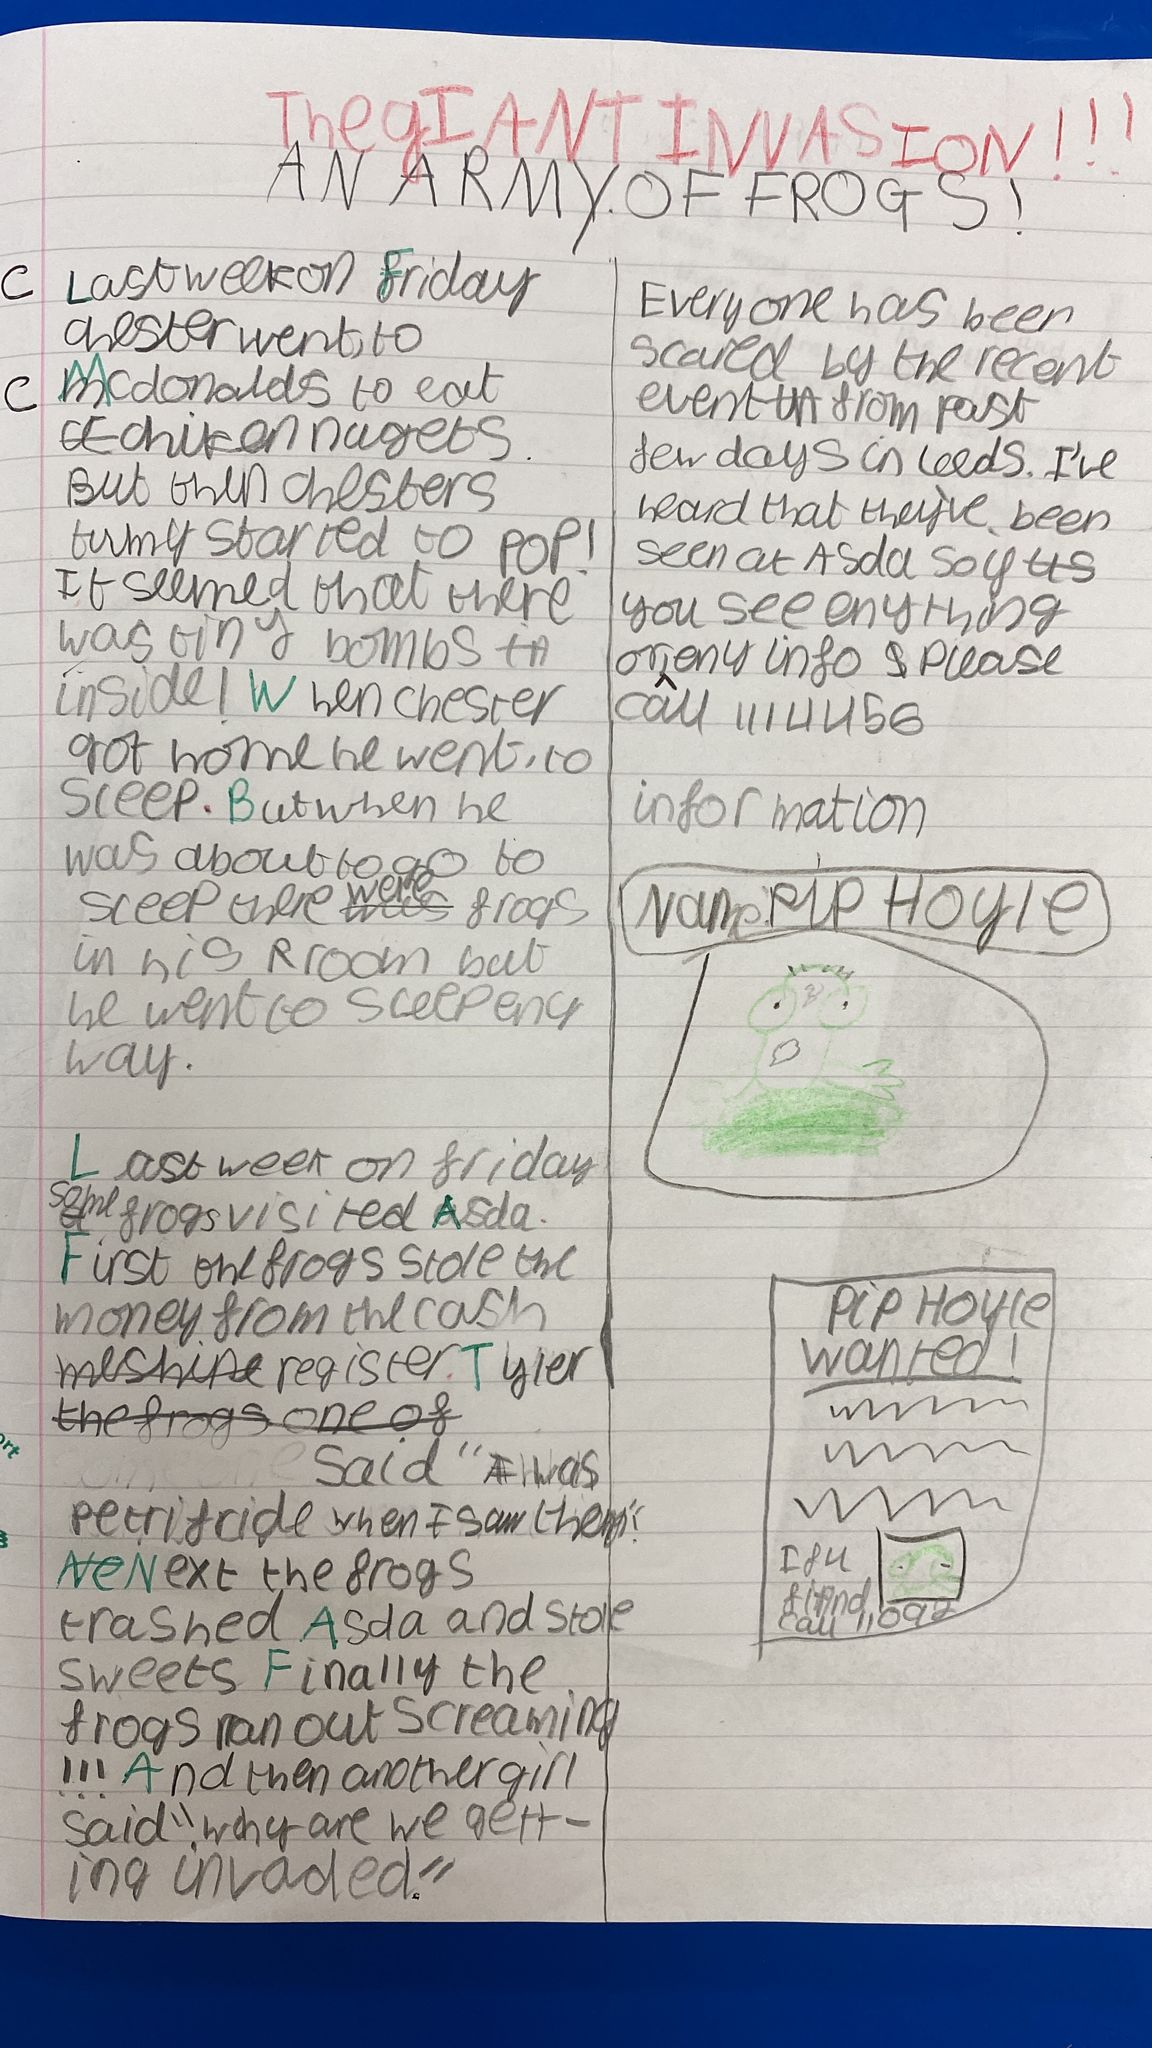 The gIANT INVASION!!!
AN ARMY OF FROGS!
C
Last week on Friday
chester went to
C
Mcdonalds to eat
chiken nugets.
But then chesters
tumy started to POP!
It seemed that there
was tiny bombs
inside! When chester
got home he went to
sleep. But when he
was about to go to
sleep there were frogs
in his Rroom but
he went to sleep eny
way.
Last week on friday
some frogs visited Asda.
First the frogs stole the
money from the cash
meshine register. Tyler
the frogs one of
said "I was
petrifride when I saw them".
NeNext the frogs
trashed Asda and stole
sweets Finally the
frogs ran out screaming
!!! And then another girl
said "why are we gett-
ing invaded."
Everyone has been
scared by the recent
event from past
few days in leeds. I've
heard that they've been
seen at Asda so if
you see enything
or eny info please
call 1114456
information
Name: PIP HOYle
PIP HOYle
wanted!
If u
find
call 11092